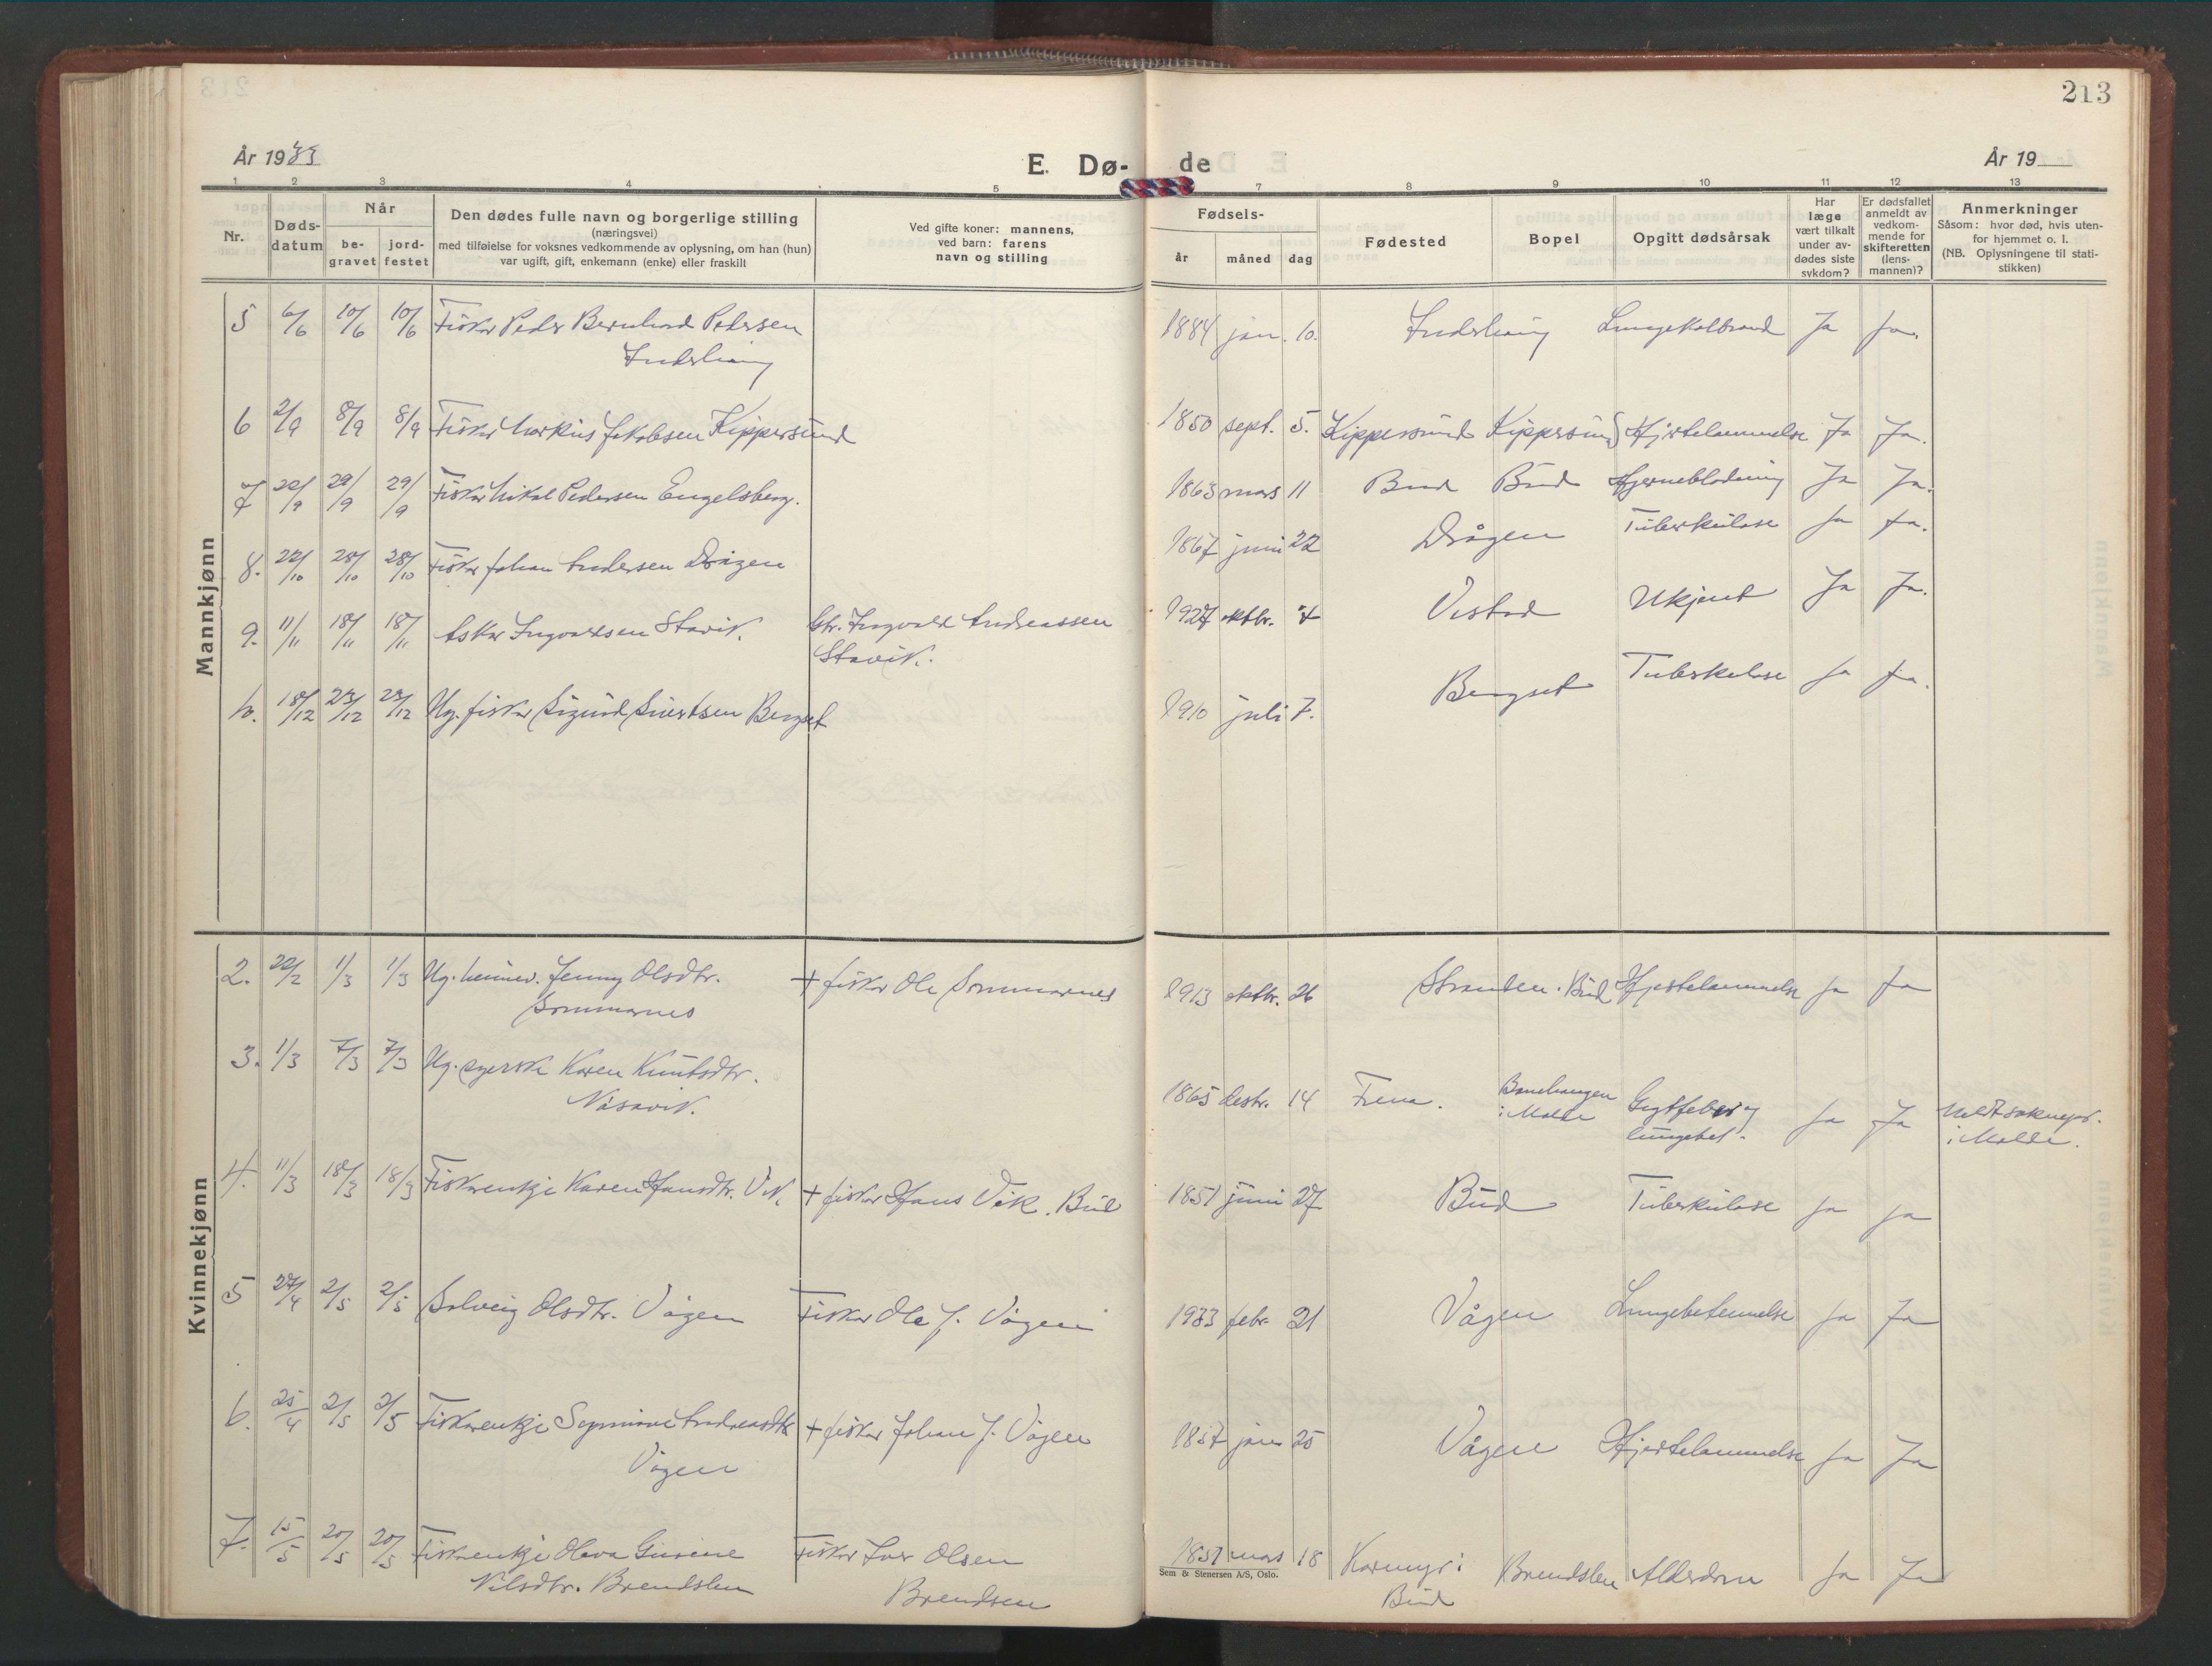 213
År 1933
E. Dø-
de
År 19
1 2 3 4 5 7 8 9 10 11 12 13
Nr.
Døds-
datum
Når
be-
gravet
jord-
festet
Den dødes fulle navn og borgerlige stilling
(næringsvei)
med tilføielse for voksnes vedkommende av oplysning, om han (hun)
var ugift, gift, enkemann (enke) eller fraskilt
Ved gifte koner: mannens,
ved barn: farens
navn og stilling
Fødsels-
år måned dag
Fødested
Bopel
Opgitt dødsårsak
Har
læge
vært tilkalt
under av-
dødes siste
sykdom?
Er dødsfallet
anmeldt av
vedkom-
mende for
skifteretten
(lens-
mannen)?
Anmerkninger
Såsom: hvor død, hvis uten-
for hjemmet o. l.
(NB. Oplysningene til stati-
stikken)
Mannkjønn
5 6/6 10/6 10/6 Fisker Peder Bernhard Pedersen 1884 jan. 10. Ja Ja.
6 2/9 8/9 8/9 Fisker Markus Jakobsen Kippersund 1850 sept. 5. Kippersund Kippersund Hjertelammelse Ja Ja.
7 22/9 29/9 29/9 Fisker Mikal Pedersen Engelsberg. 1863 mars 11 Bud Bud Hjerneblødning Ja Ja.
8. 22/10 28/10 28/10 Fisker Johan Andersen Drågen 1867 juni 22 Drågen Tuberkulose Ja Ja.
9. 11/11 18/11 18/11 Asker Ingvaldsen Stavik. Gbr. Ingvald Andreassen 1927 oktbr. 7 Vestad Ukjent Ja Ja.
Stavik.
10. 18/12 23/12 23/12 Ug. fisker Sigurd Sivertsen Bergset 1910 juli 7. Bergset Tuberkulose Ja Ja.
Kvinnekjønn
2. 22/2 1/3 1/3 Ug. Jenny Olsdtr. + fisker Ole Sommarnes 1913 oktbr. 26 Stranden. Bud Hjertelammelse Ja Ja
Sommarnes
3. 1/3 7/3 7/3 Ug. syerske Karen Knutsdtr. 1865 desbr. 14 Frena. i Molde Ja Ja
Nåsavik. lungebet. i Molde.
4. 11/3 18/3 18/3 Fiskerenkje Karen Hansdtr. Vik. + fisker Hans Vik. Bud 1851 juni 27 Bud Tuberkulose Ja Ja
5 27/4 2/5 2/5 Solveig Olsdtr. Vågen Fisker Ole J. Vågen 1933 febr. 21 Vågen Lungebetennelse Ja Ja
6. 25/4 2/5 2/5 Fiskerenkje Andreasdtr. + fisker Johan J. Vågen 1857 jan 25 Vågen Hjertelammelse Ja Ja
Vågen
7. 15/5 20/5 20/5 Fiskerenkje Olava Gurine Fisker Iver Olsen 1851 mars 18 Karmyr i Brendslen Alderdom Ja Ja
Nilsdtr. Brendslen Brendsen Bud
Sem & Stenersen A/S, Oslo.